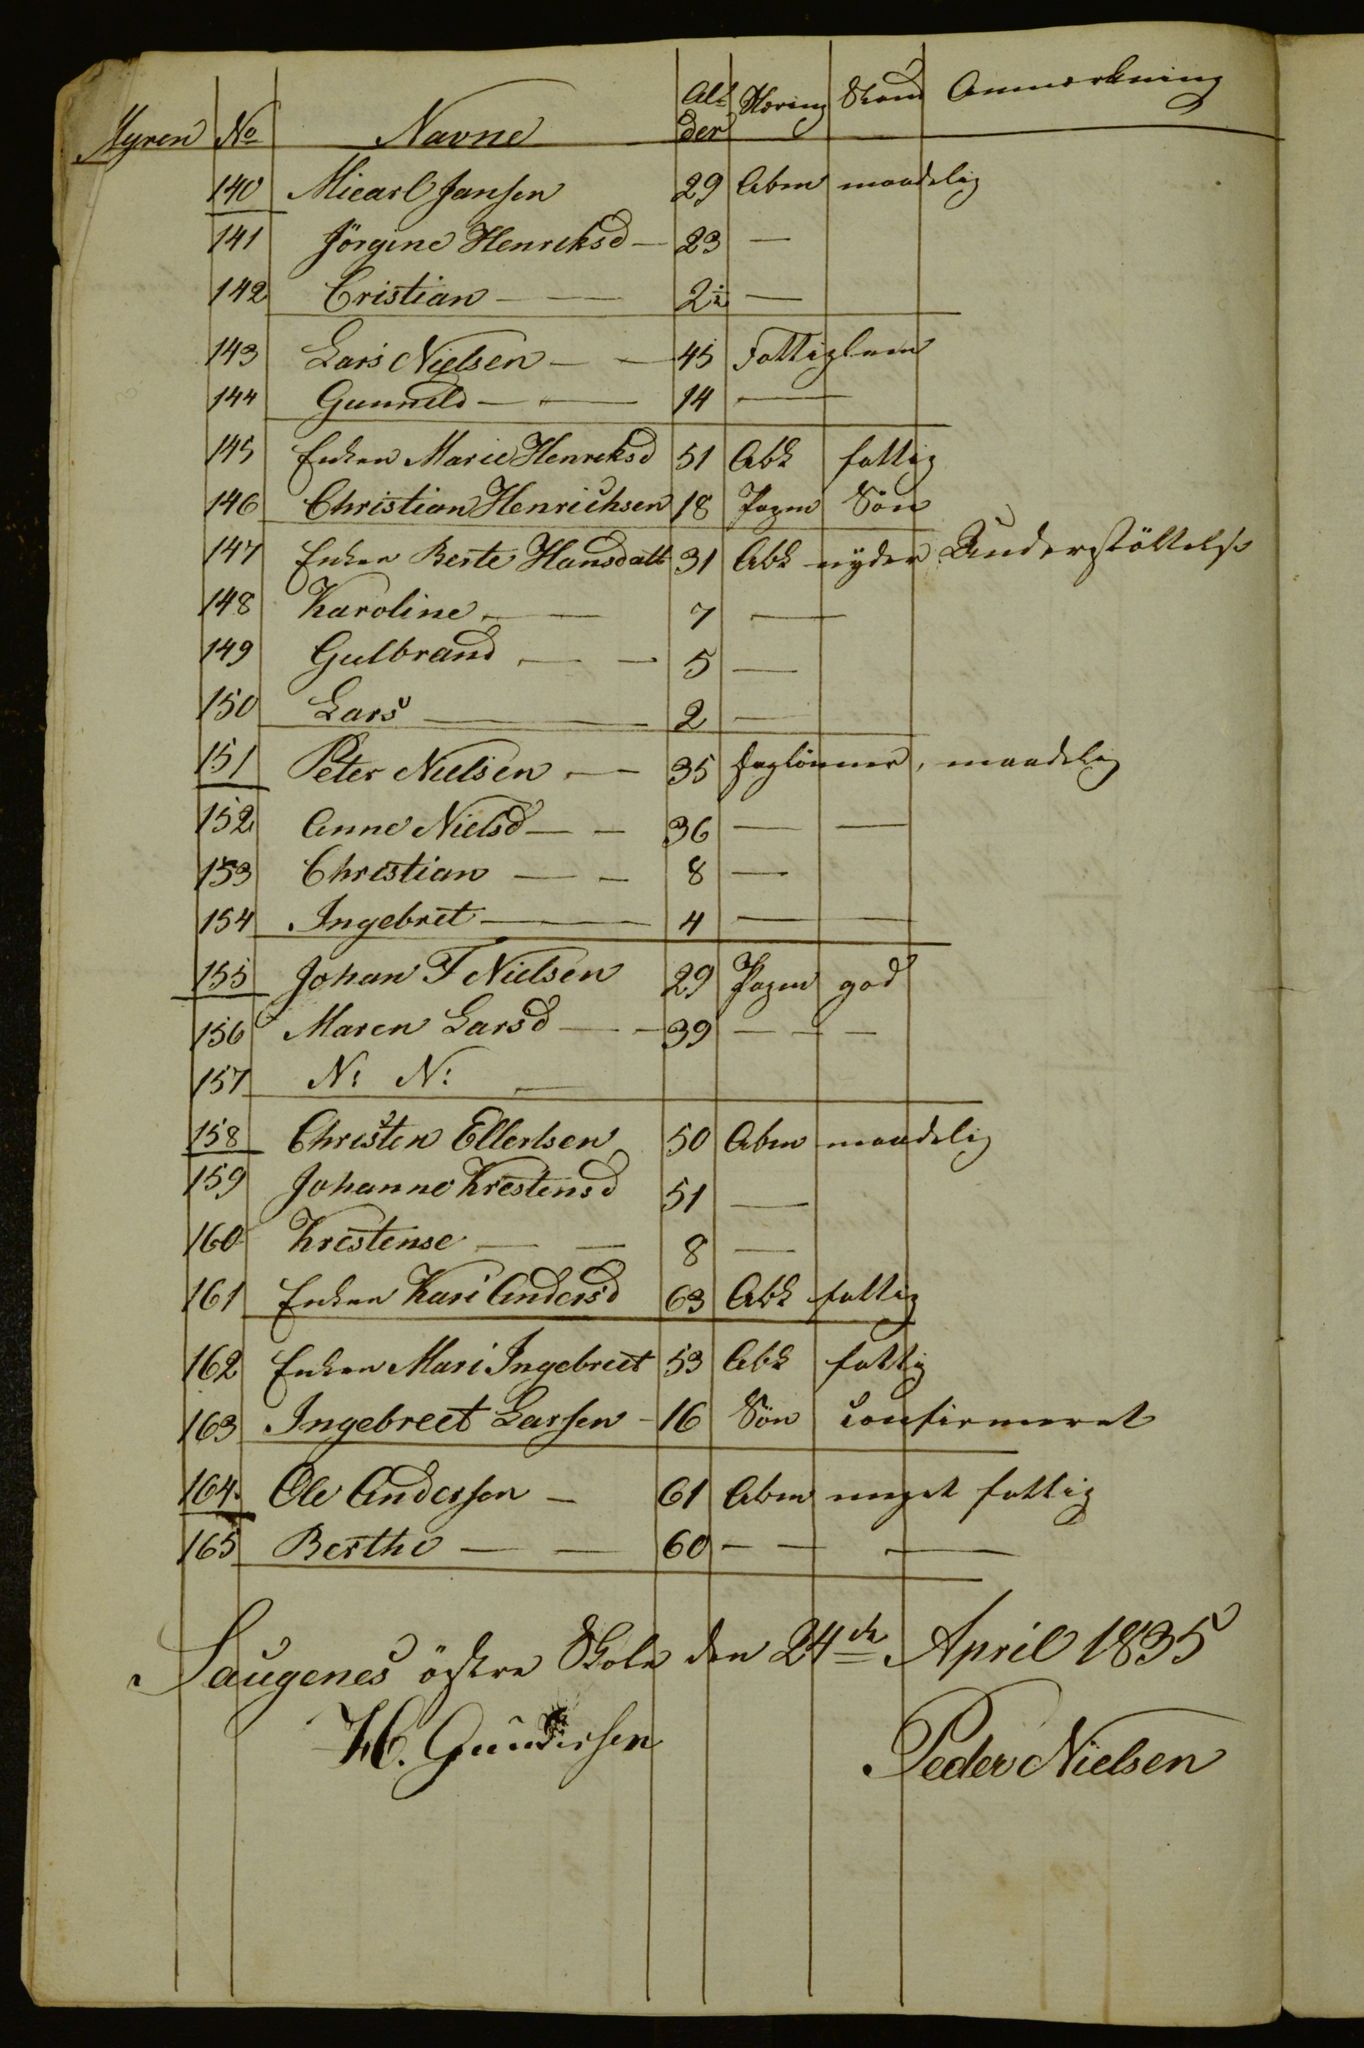 Myren No Navne Alder Næring Stand Anmærkning
140 Micarl Jansen 29 Abm maadelig
141 Jörgine Henriksd — 23 —
142 Cristian — — 2½ —
143 Lars Nielsen — — 45 Fattiglem
144 Gunnild — — 14 —
145 Enken Marie Henreksd 51 Abk fattig
146 Christian Henrichsen 18 Jagm Sön
147 Enken Berte Hansdatt 31 Abk nyder Understöttelse
148 Karoline — — 7 —
149 Gulbrand — — 5 —
150 Lars — 2 —
151 Peter Nielsen — 35 Daglönner, maadelig
152 Anne Nielsd — — 36 — —
153 Christian — — 8 —
154 Ingebret — 4 — —
155 Johan F Nielsen 29 Jagm god
156 Maren Larsd — — 39 — — —
157 N: N: —
158 Christen Ellertsen 50 Abm maadelig
159 Johanne Krestensd 51 —
160 Krestense — — 8 —
161 Enken Kari Andersd 63 Abk fattig
162 Enken Mari Ingebreet 53 Abk fattig
163 Ingebreet Larsen — 16 Sön confirmeret
164. Ole Andersen — 61 Abm meget fattig
165 Berthe — — 60 — — —
Saugenes östre Skole den 24de April 1835
H. Gundersen Peder Nielsen